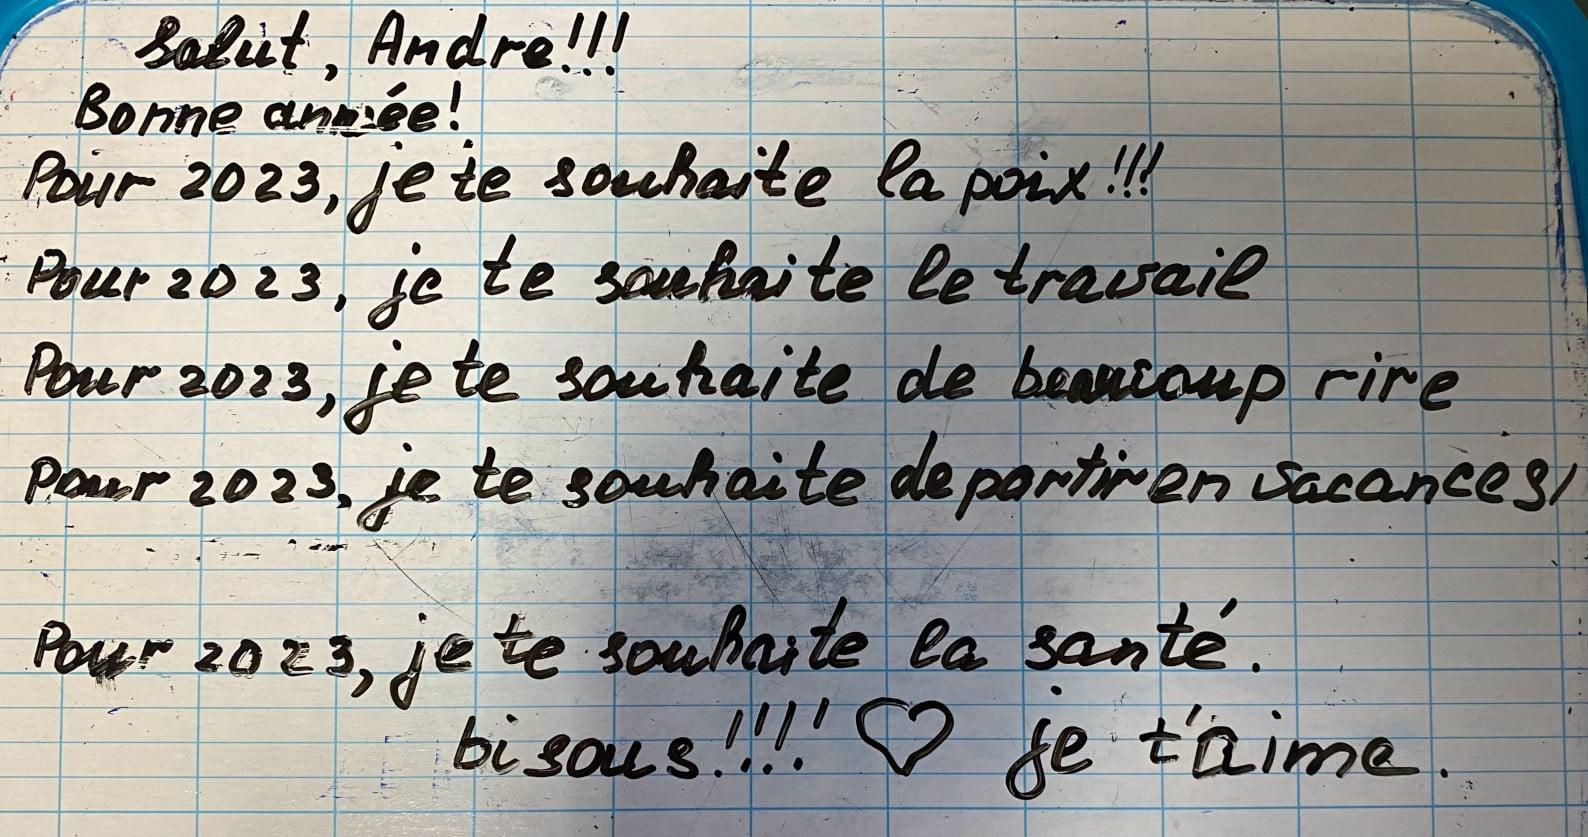 Salut, Andre!!!
Bonne année!
Pour 2023, je te souhaite la poix!!!
Pour 2023, je te souhaite le travail
Pour 2023, je te souhaite de beaucoup rire
Pour 2023, je te souhaite de partir en vacances,
Pour 2023, je te souhaite la santé.
bisous!!!! ♡ je t'aime.